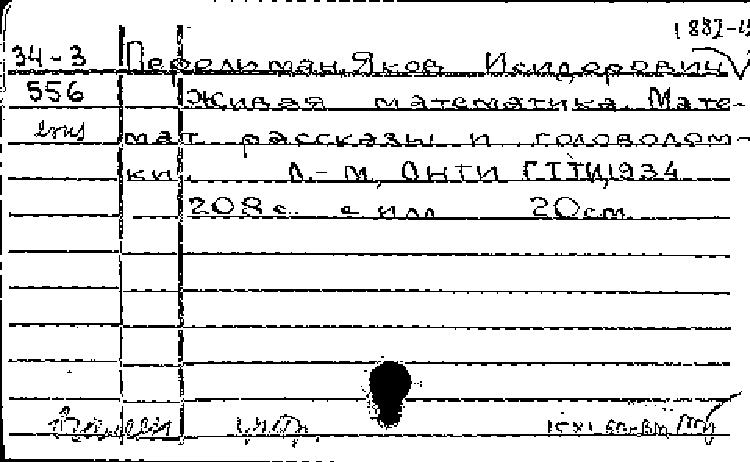 34-3 Перельман, Яков Исидорович
556 Живая математика. Мате-
мат. рассказы и головолом-
ки. Л.-М, ОНТИ ГТТИ, 1934
208 с. с илл 20 см.